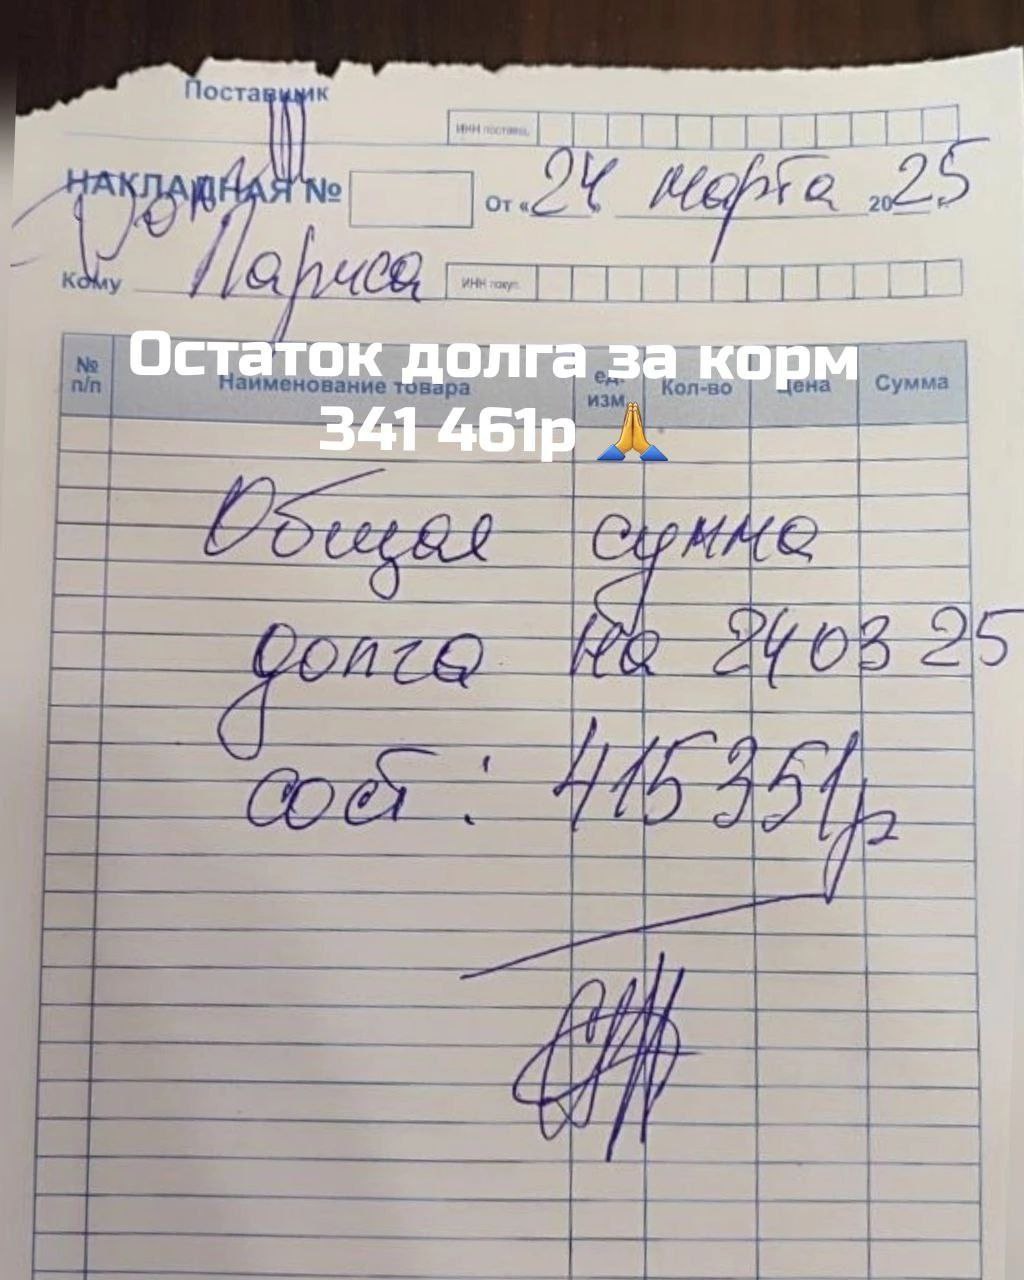 Поставщик
ИНН поставщ.
НАКЛАДНАЯ № От «24» марта 2025 г.
Кому Лариса ИНН покуп.
Остаток долга за корм
341 461р 🙏
№ п/п Наименование товара ед. изм. Кол-во цена Сумма
Общая сумма
долга на 24 03 25
сост : 415351р